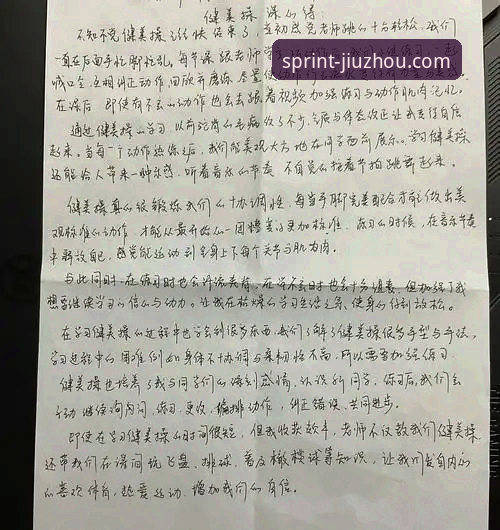 健美操 课心得
不知不觉健美操
一直在后面手忙脚乱，每节课 跟老师
sprint-jiuzhou.com
在课后 即使有不会的动作 也会去跟着视频加强练习与动作肌肉记忆。
通过健美操的学习 以前驼背的毛病改了不少，气质与体态改正让我变得自信
起来。当每一个动作熟练之后，我们能美观大方地在同学面前展示。学习健美操
还能给人带来一种乐感，听着音乐的节奏 不自觉的按着节拍跳起来。
健美操真的很锻炼我们的协调性，每当手脚完美配合才能做出美
观标准的动作，才能从最开始的 更加标准，练习的时候，在音乐节奏
中释放自己，感觉能运动到全身上下每个关节与肌肉。
与此同时，在练习时也会 在学不会时也会十分沮丧，但加强了我
想要继续学习的信心与动力。让我在枯燥的学习生涯之余，使身心得到放松。
在学习健美操的过程中也学会到很多东西，我们了解了健美操很多手型与手法，
学习过程中的困难例如身体不协调与柔韧性不高，所以需要加强练习。
健美操也培养了我与同学们的深刻感情，认识新同学，练习后，我们会
互动继续询问 练习，更改，编排动作，纠正错误，共同进步。
即使在学习健美操的时间很短，但我收获颇丰，老师不仅教我们健美操
还带我们在课间玩飞盘、排球，普及橄榄球等知识，让我们发自内心
的喜欢体育，热爱运动，增加我们的自信。